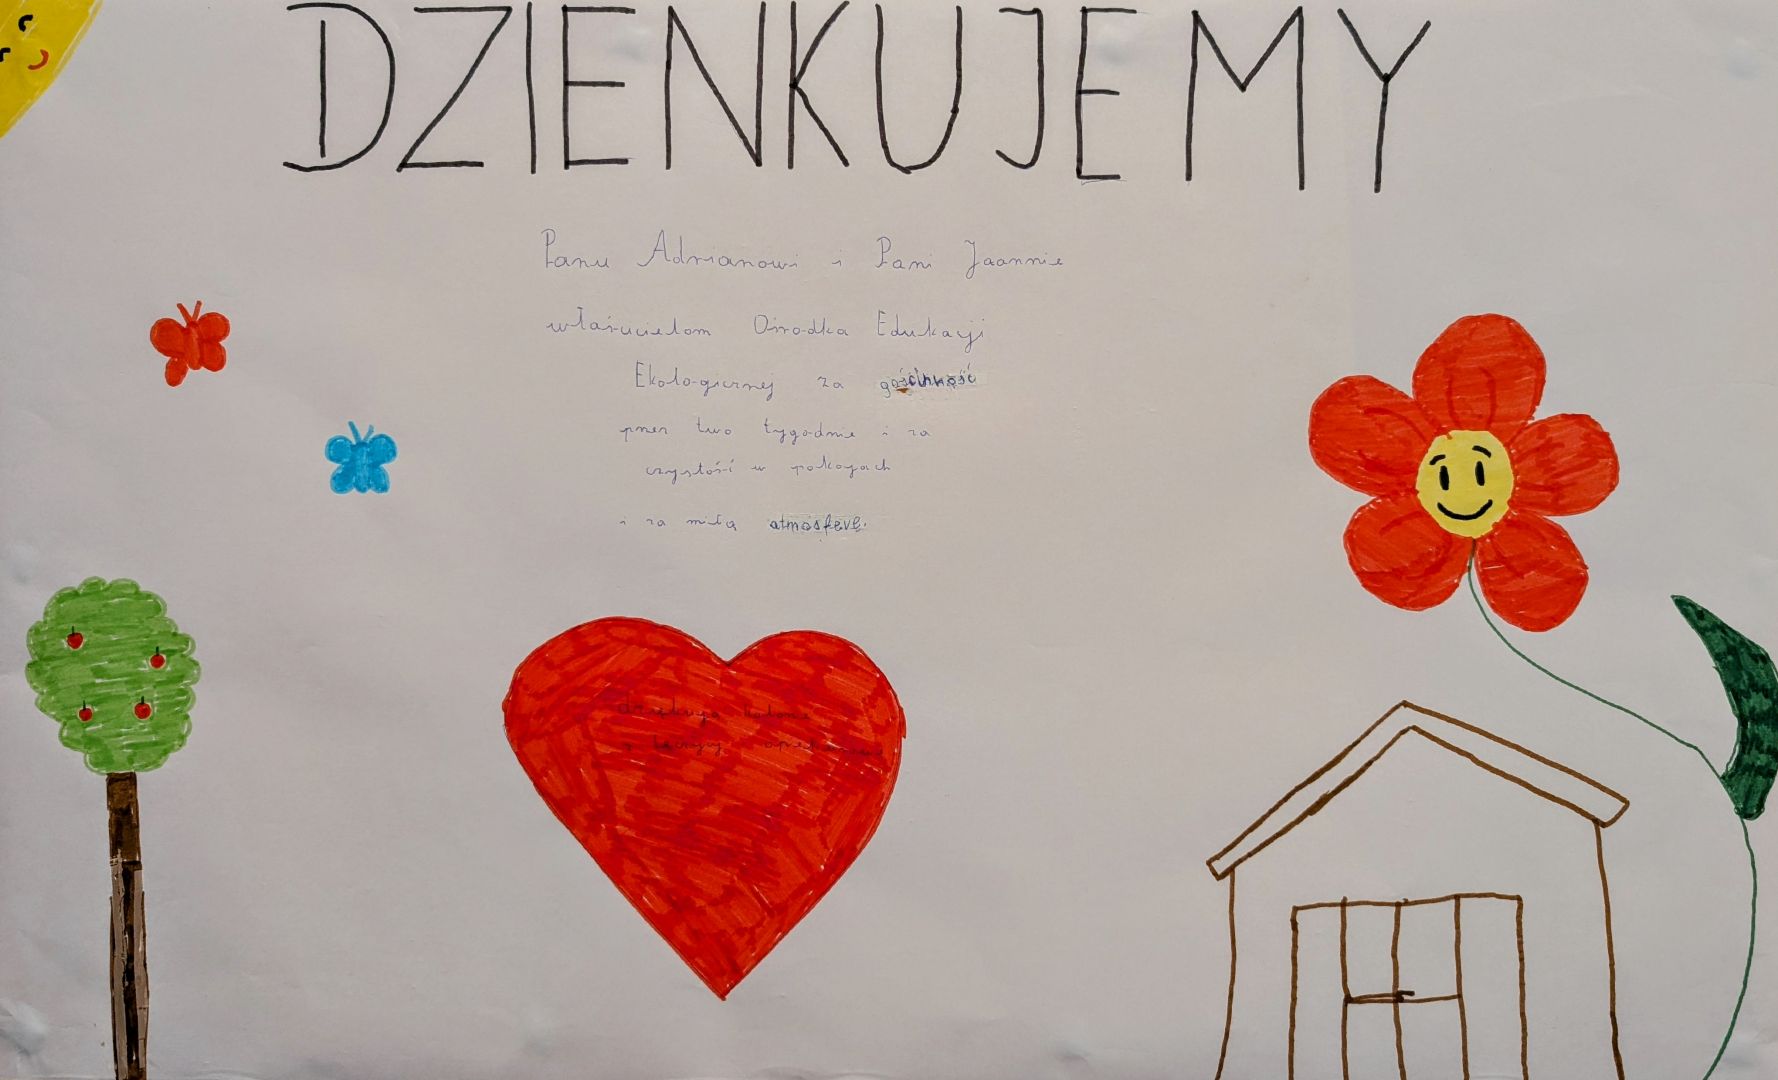 DZIENKUJEMY
Panu Adrianowi i Pani Joannie
właścicielom Ośrodka Edukacji
Ekologicznej za gościnność
przez two tygodnie i za
czystość w pokoyach
i za miłą atmosferę.